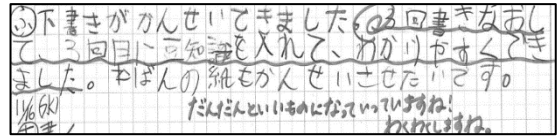 ㋵下書きがかんせいできました。3回書きなおし
て、3回目に豆知識を入れて、わかりやすくでき
ました。本ばんの紙もかんせいさせたいです。
11/6(火)
だんだんといいものになっていっていますね!
わくわくしますね。